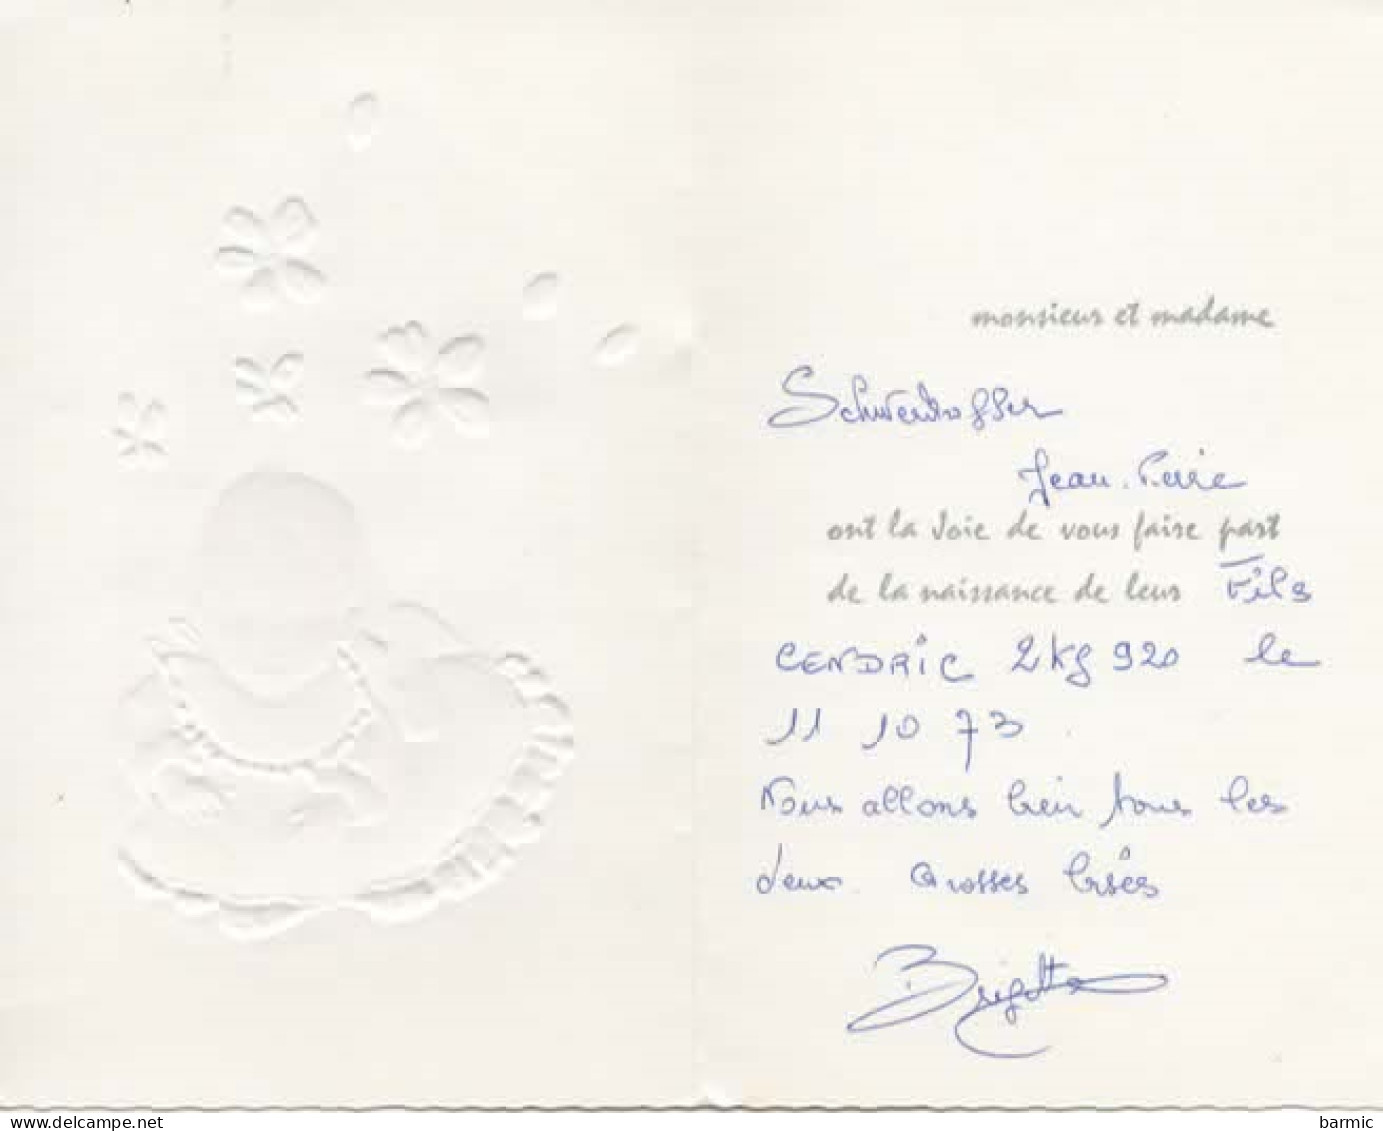 monsieur et madame
Schweitzer
Jean-Pierre
ont la Joie de vous faire part
de la naissance de leur Fils
CENDRIC 2 kg 920 le
11 10 73.
Nous allons bien tous les
deux. Grosses bises
Brigitte
barmic